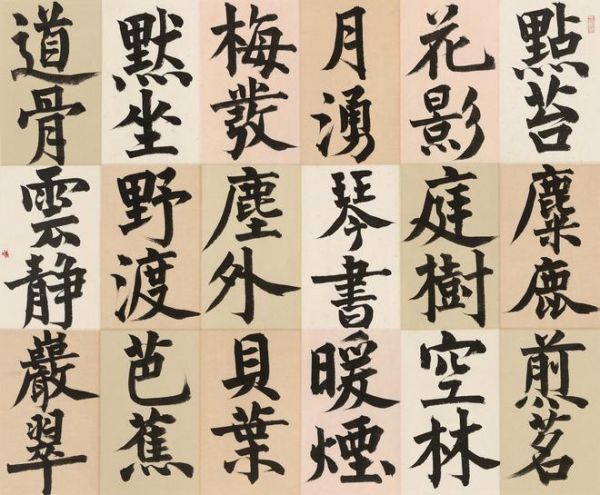 點苔
花影
月湧
梅發
默坐
道骨
麋鹿
庭樹
琴書
塵外
野渡
雲静
煎茗
空林
暖煙
貝葉
芭蕉
巖翠